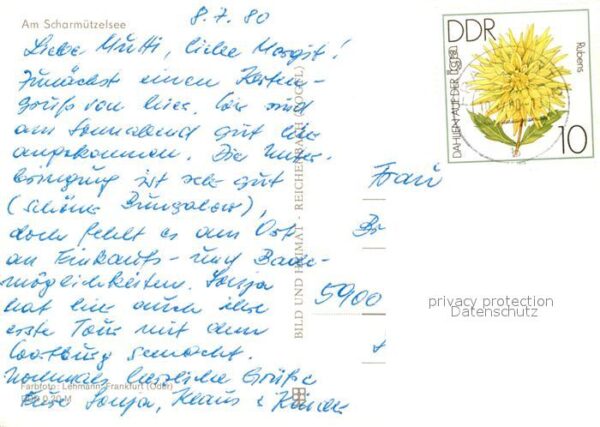 Am Scharmützelsee
8.7.80
Liebe Mutti, liebe Margit!
Zunächst einen Karten-
gruß von hier. Wir sind
am Sonnabend gut hier
angekommen. Die Unter-
bringung ist sehr gut
(schöne Bungalows),
doch fehlt es am Ort
an Einkaufs- und Bade-
möglichkeiten. Sonja
hat hier auch ihre
erste Tour mit dem
Wartburg gemacht.
Nochmals herzliche Grüße
Eure Sonja, Klaus &
Farbfoto: Lehmann, Frankfurt (Oder)
0,20 M
BILD UND HEIMAT - REICHENBACH (VOGTL)
DDR
DAHLIEN AUF DER
Rubens
10
Frau
5900
privacy protection
Datenschutz